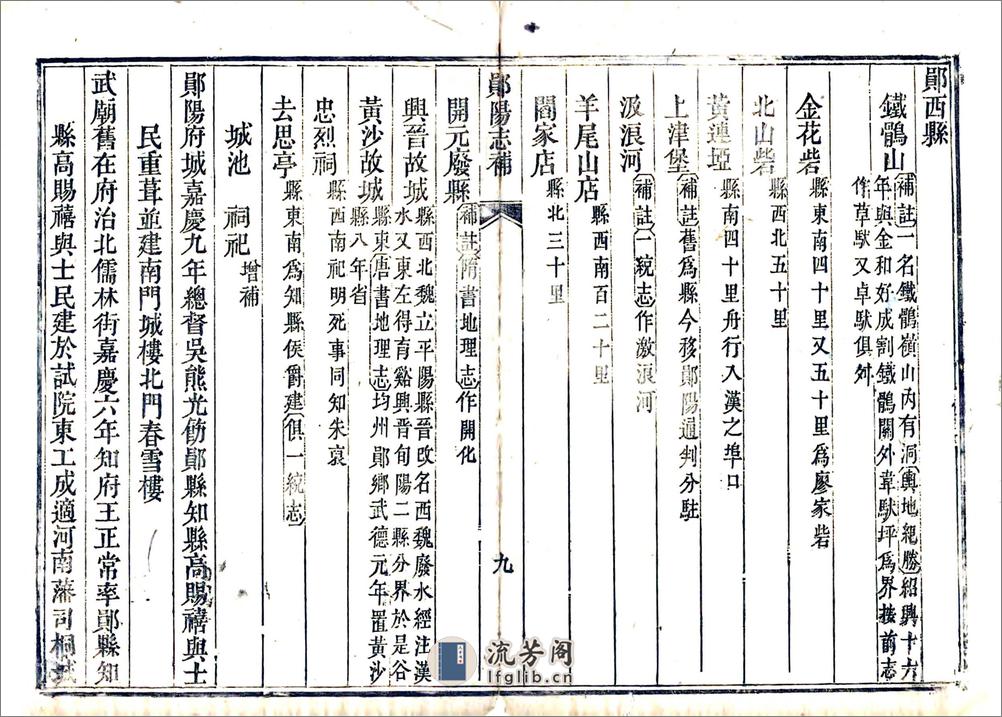 鄖西縣
鐵鶻山 補註一名鐵鶻嶺山內有洞輿地紀勝紹興十六
年與金和好成割鐵鶻關外韋馱坪爲界接前志
作草馱又卓馱俱舛
金花砦 縣東南四十里又五十里爲廖家砦
北山砦 縣西北五十里
黃連埡 縣南四十里舟行入漢之埠口
上津堡 補註舊爲縣今移鄖陽通判分駐
汲浪河 補註一統志作激浪河
羊尾山店 縣西南百二十里
閻家店 縣北三十里
鄖陽志補
九
開元廢縣 補註隋書地理志作開化
興晉故城 縣西北魏立平陽縣晉改名西魏廢水經注漢
水又東左得育谿興晉旬陽二縣分界於是谷
黃沙故城 縣東唐書地理志均州鄖鄉武德元年置黃沙
縣八年省
忠烈祠 縣西南祀明死事同知朱裒
去思亭 縣東南爲知縣侯爵建俱一統志
城池 祠祀 增補
鄖陽府城嘉慶九年總督吳熊光飭鄖縣知縣高賜禧與士
民重葺並建南門城樓北門春雪樓
武廟舊在府治北儒林街嘉慶六年知府王正常率鄖縣知
縣高賜禧與士民建於試院東工成適河南藩司桐城
流芳阁
lfglib.cn